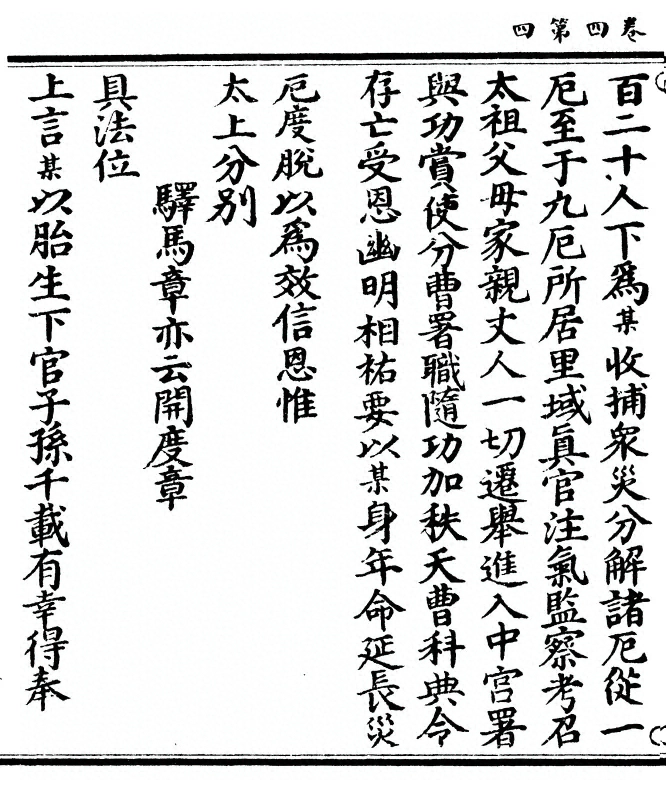 卷四第四
百二十人下爲某收捕衆災分解諸厄從一
厄至于九厄所居里域眞官注氣監察考召
太祖父母家親丈人一切遷舉進入中宮署
與功賞使分曹署職隨功加秩天曹科典令
存亡受恩幽明相祐要以某身年命延長災
厄度脫以爲效信恩惟
太上分别
驛馬章亦云開度章
具法位
上言某以胎生下官子孫千載有幸得奉